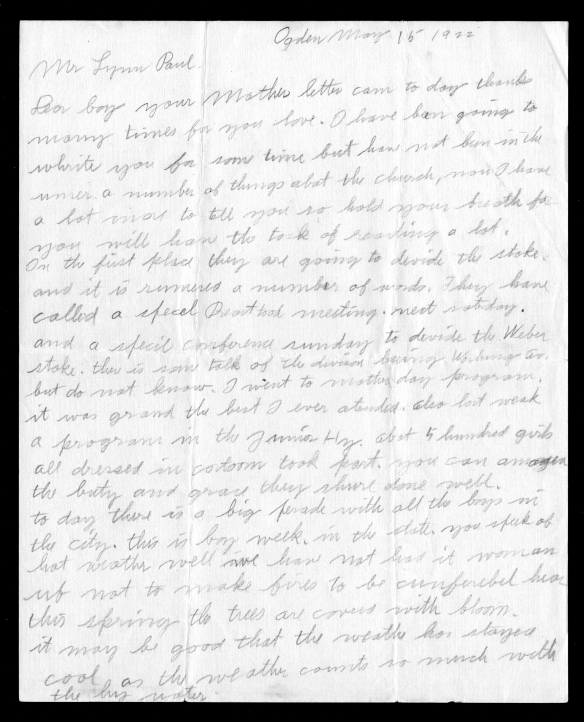 Ogden May 15 1922
Mr Lynn Paul.
Dear boy your Mother letter cam to day thanks
many times for you love. I have ben going to
whrite you for some time but have not ben in the
a number of things abat the church, now I have
a lot more to tell you so hold your breath for
you will have the task of reading a lot.
On the first place they are going to divide the stake.
and it is rumered a number of wards. They have
called a specel meeting. next
and a specil conference sunday to divide the Weber
stake. ther is som talk of the division being
but do not know. I went to mother day program.
it was grand the best I ever atended. also last weak
a program in the Junior Hy. abot 5 hundred girls
all dressed in costoom took part. you can
the buty and grace they shure done well.
to day there is a big perade with all the boys in
the city. this is boy week. in the state. you speek of
hot weather well we have not had it worm an
uf not to make fires to be hear
this spring the trees are coverd with bloom.
it may be good that the weathe has stayed
cool as the weather counts so much with
the hy water.